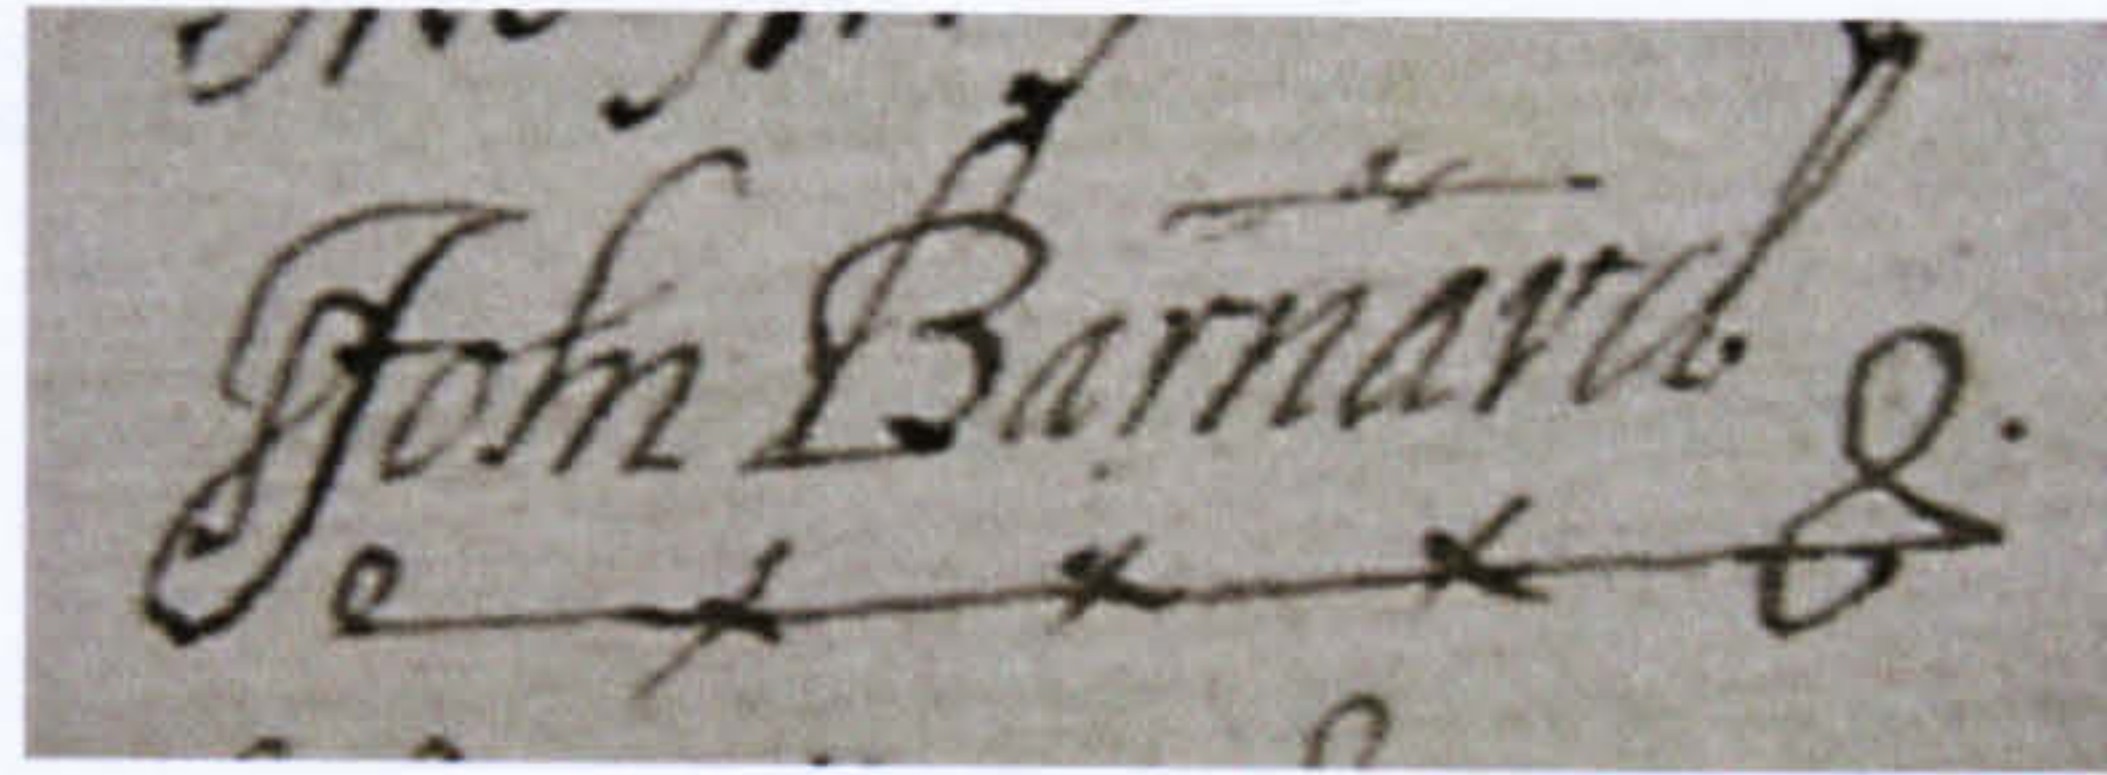 John Barnard